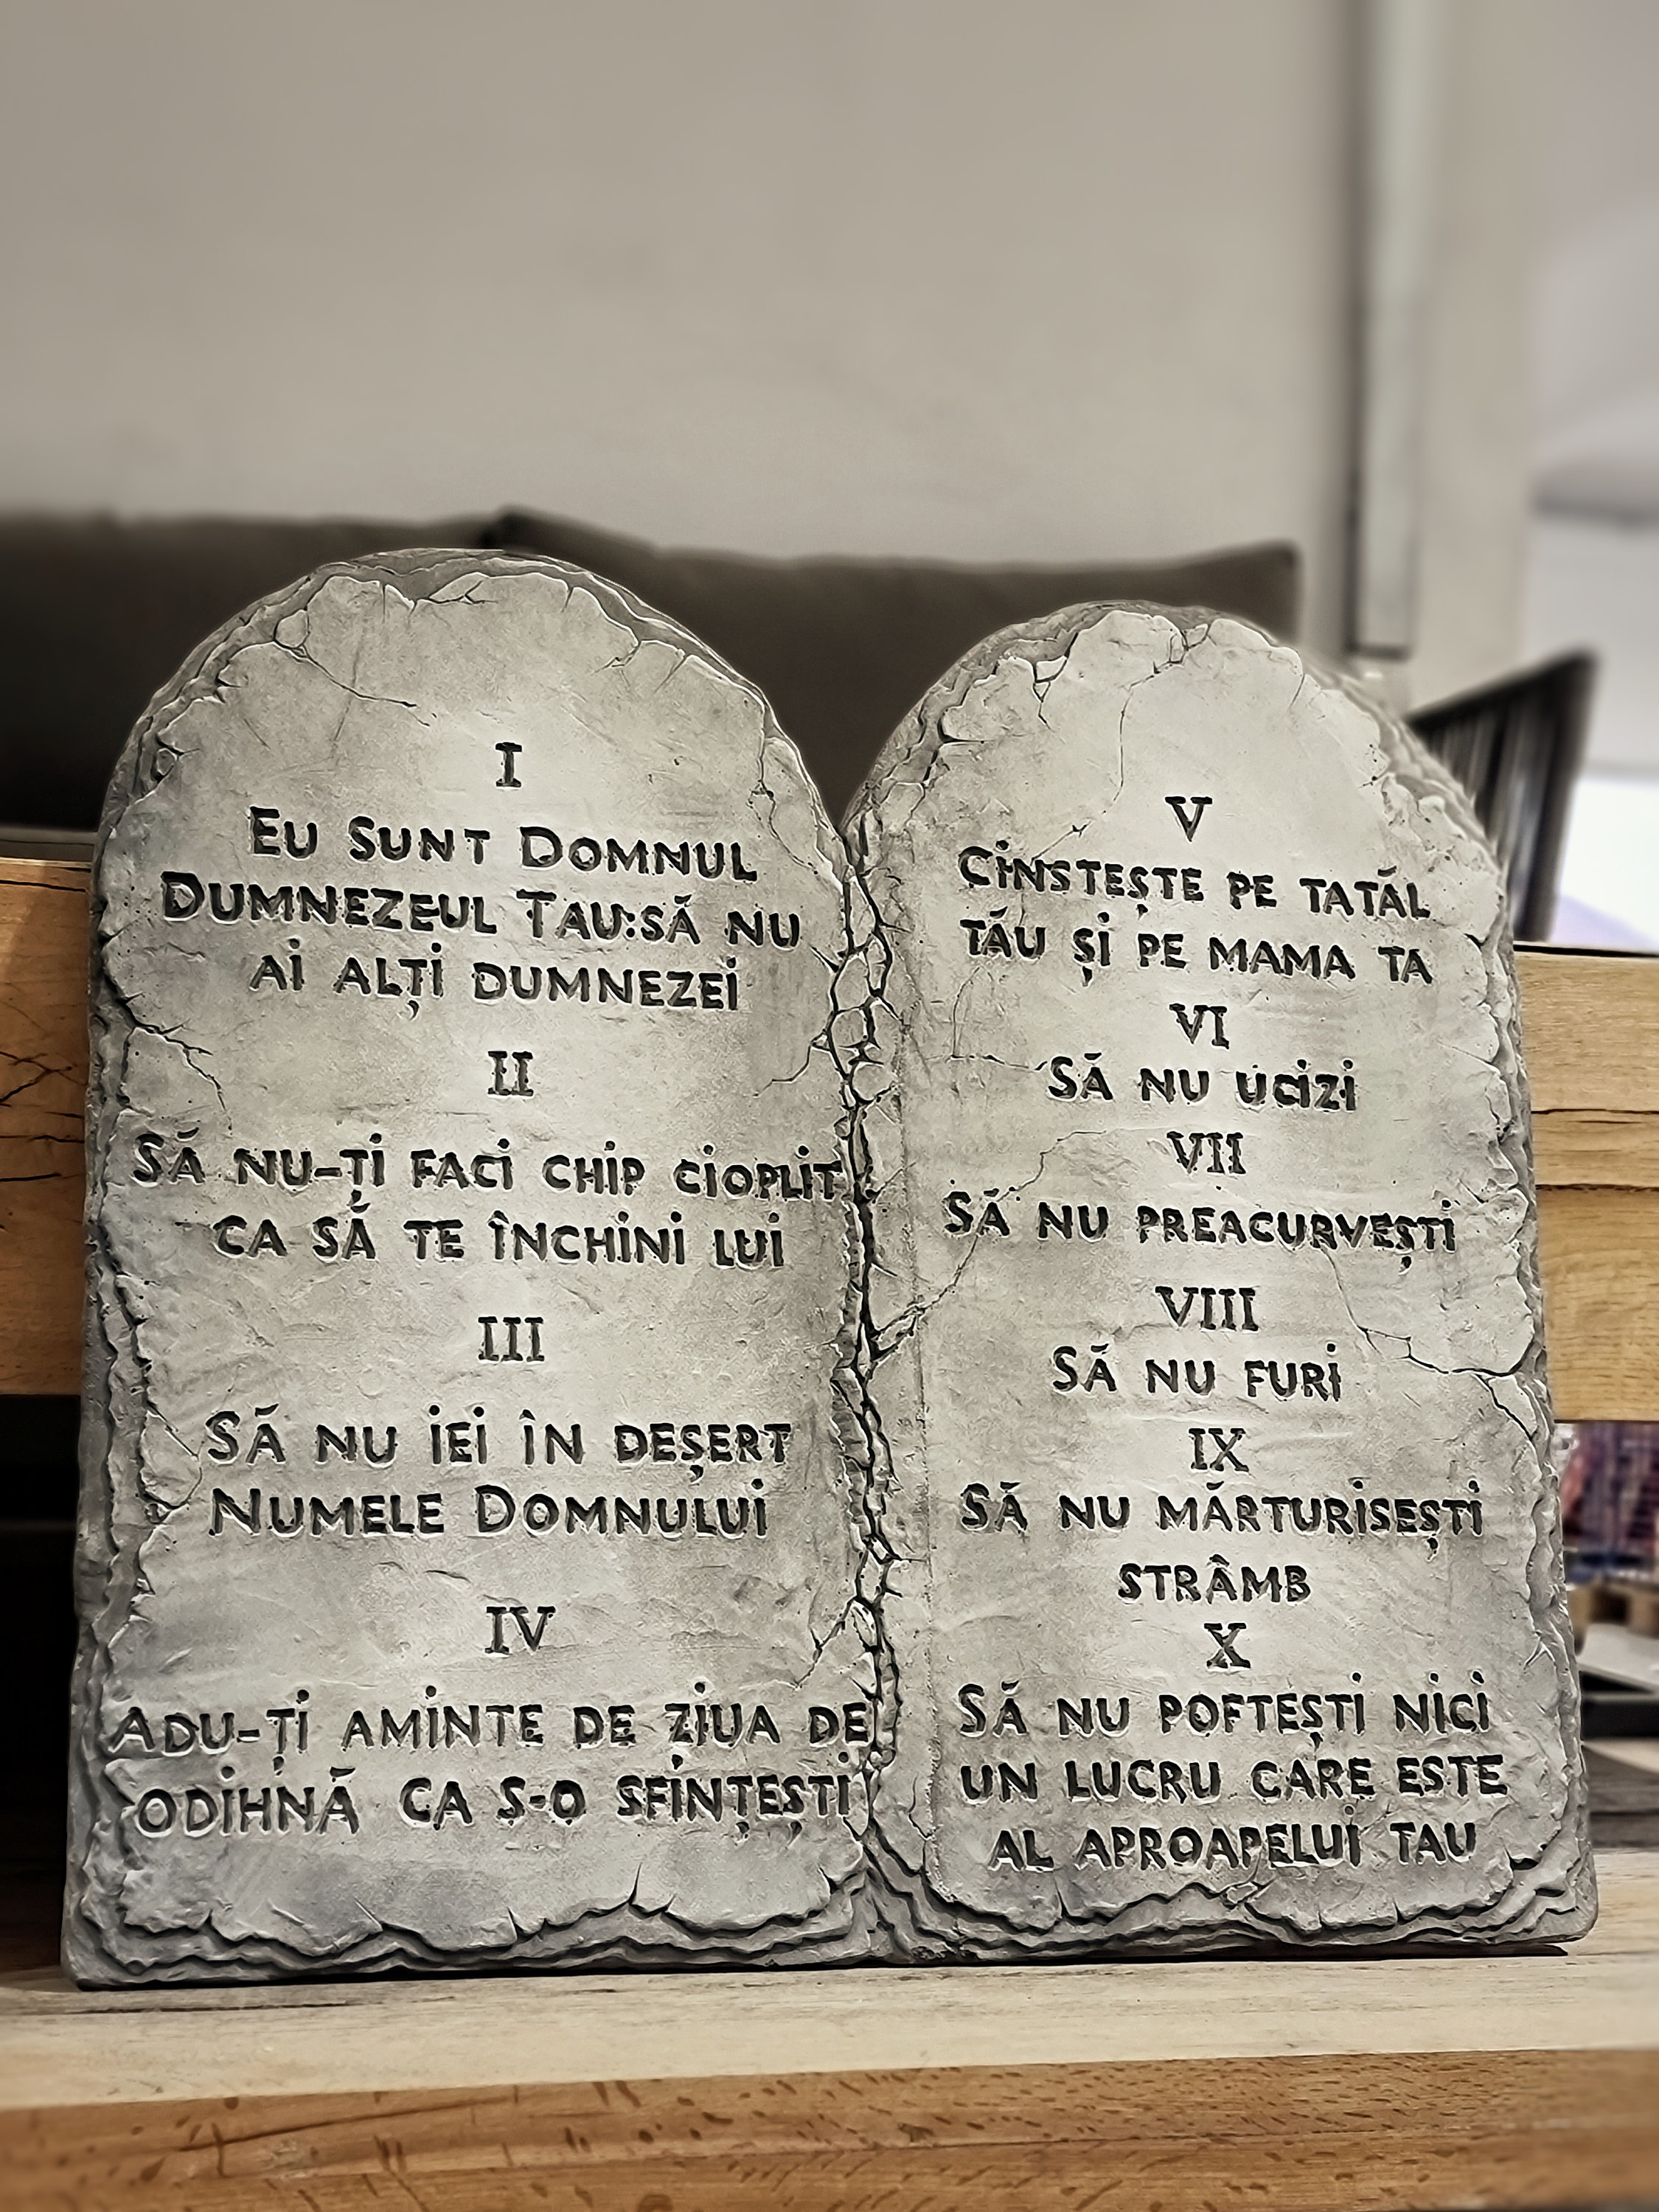 I
Eu Sunt Domnul
Dumnezeul Tau:să nu
ai alți dumnezei
II
Să nu-ți faci chip cioplit
ca să te închini lui
III
Să nu iei în deșert
Numele Domnului
IV
Adu-ți aminte de ziua de
odihnă ca s-o sfințești
V
Cinstește pe tatăl
tău și pe mama ta
VI
Să nu ucizi
VII
Să nu preacurvești
VIII
Să nu furi
IX
Să nu mărturisești
strâmb
X
Să nu poftești nici
un lucru care este
al aproapelui tau